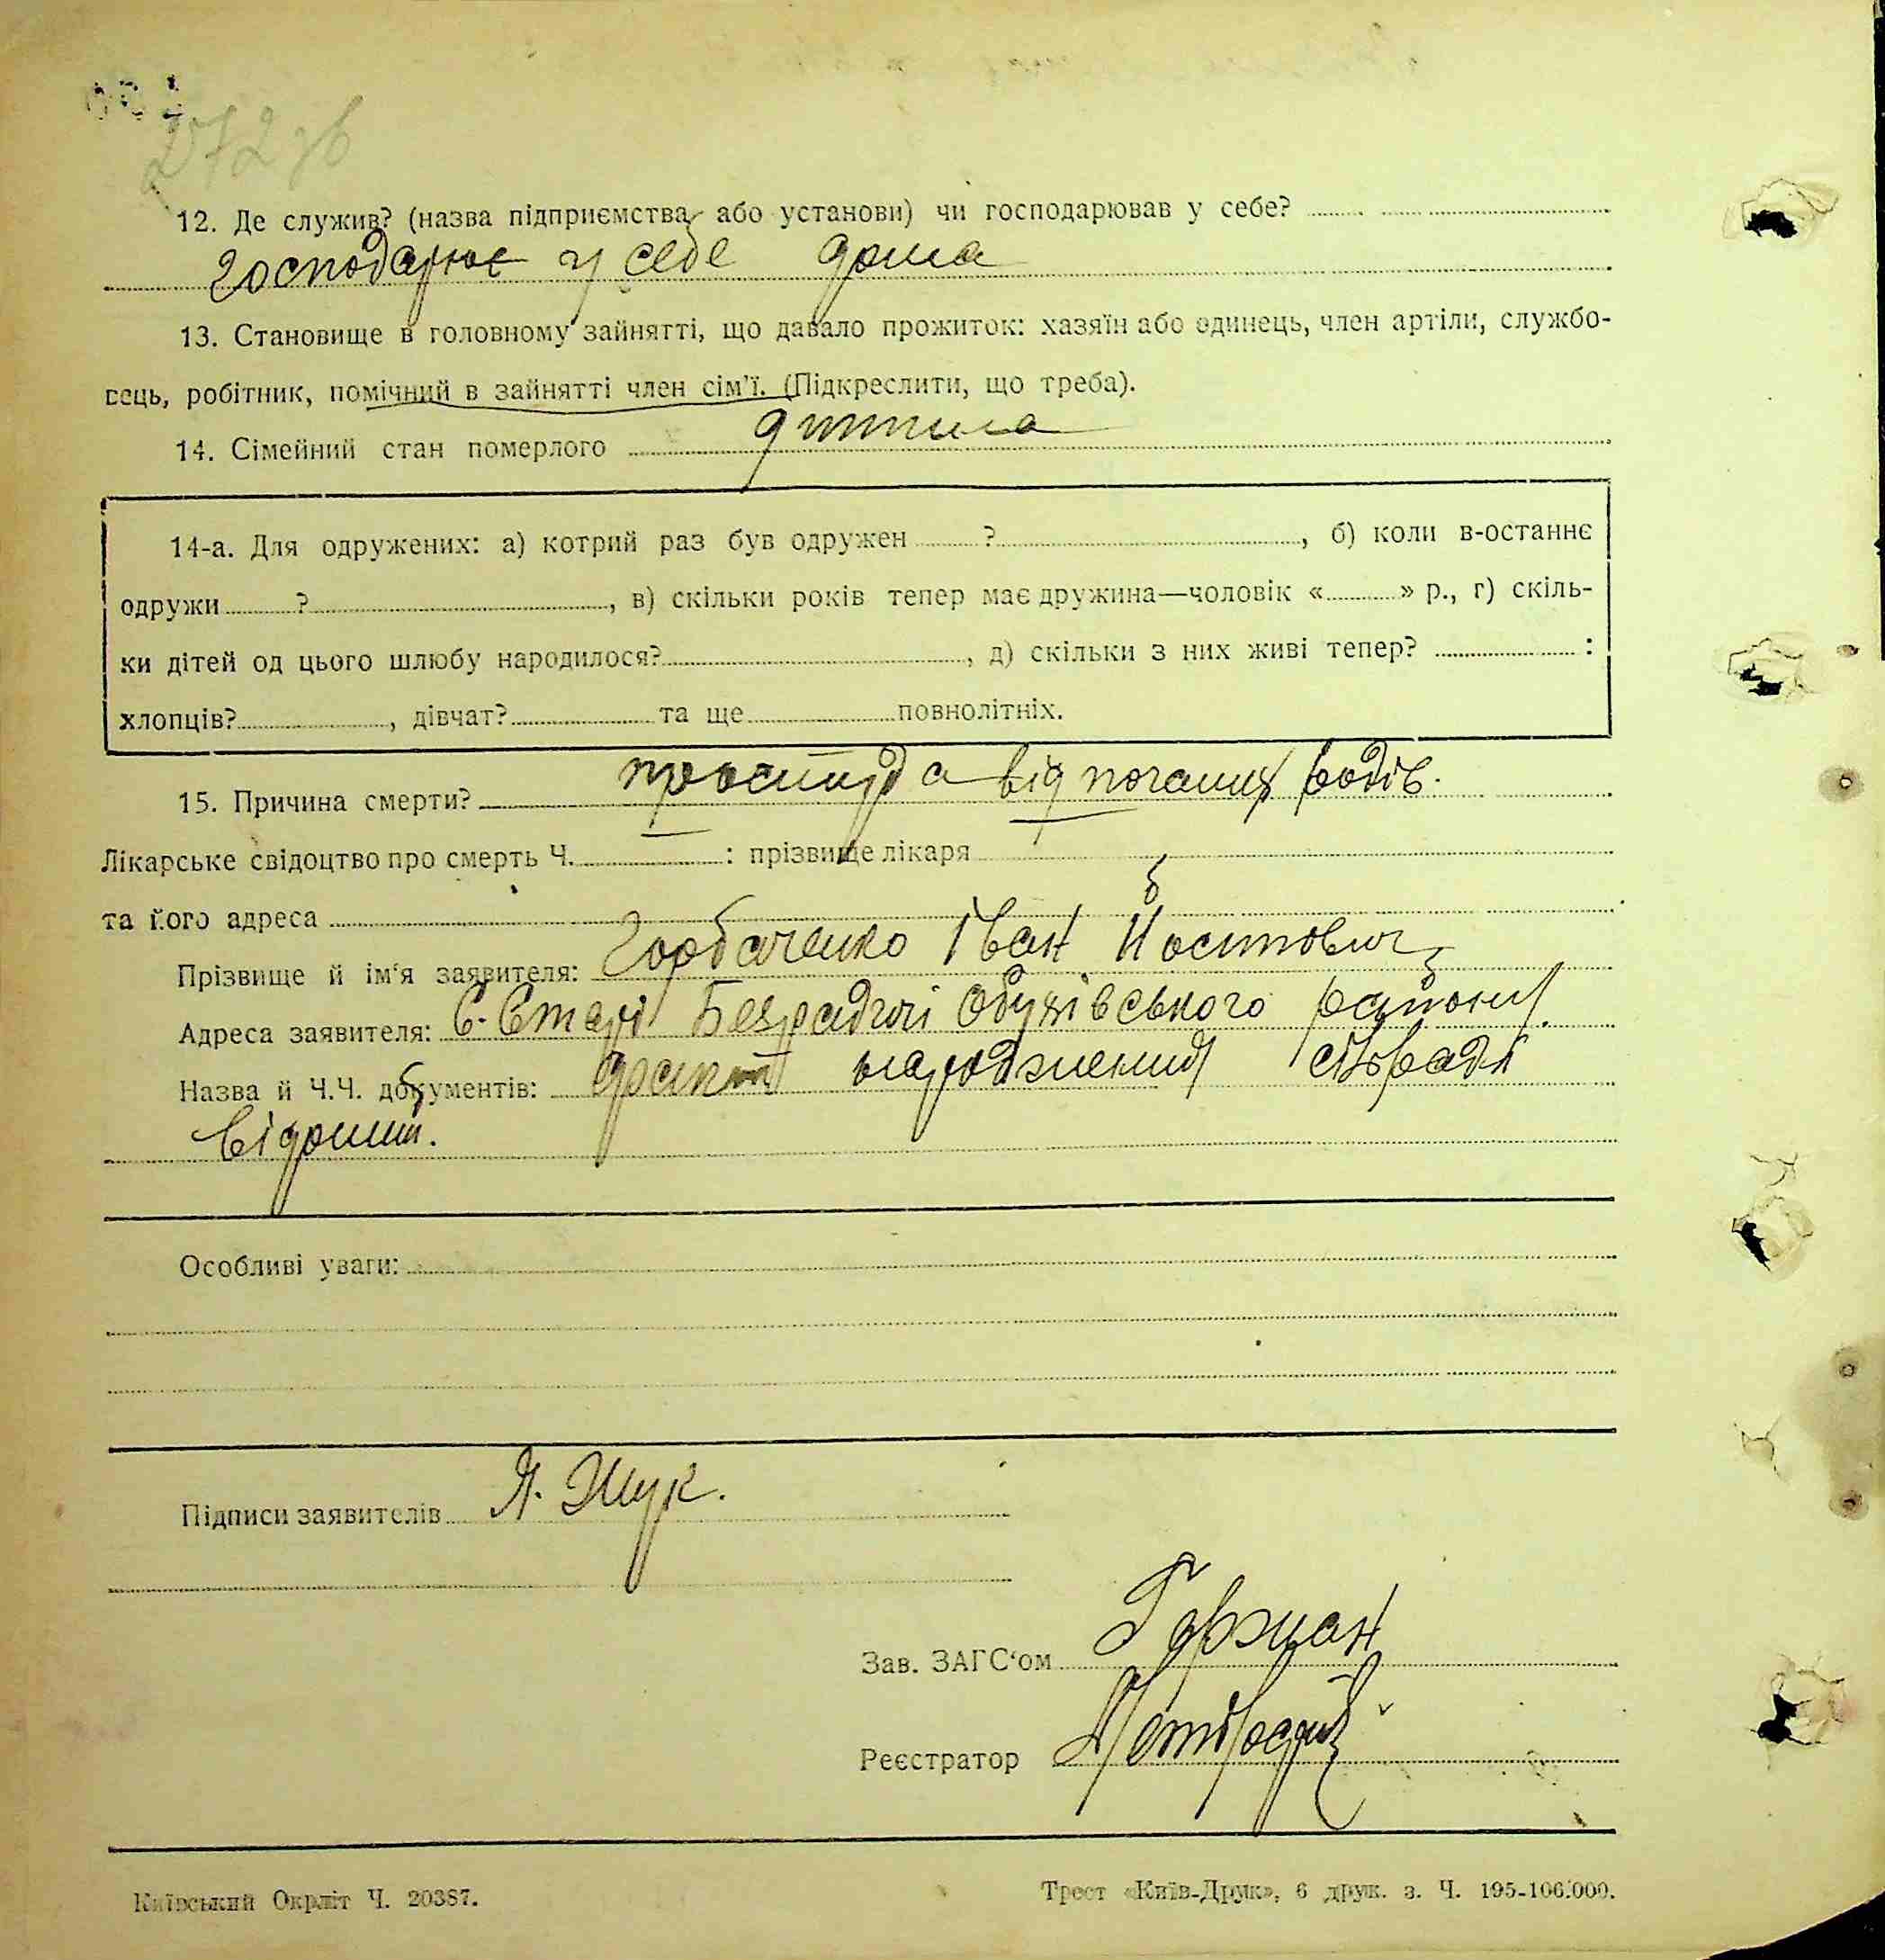 272 зв
12. Де служив? (назва підприємства або установи) чи господарював у себе?
господарює у себе дома
13. Становище в головному зайнятті, що давало прожиток: хазяїн або одинець, член артіли, службо-
вець, робітник, помічний в зайнятті член сім'ї. (Підкреслити, що треба).
14. Сімейний стан померлого дитина
14-а. Для одружених: а) котрий раз був одружен ?, б) коли в-останнє
одружи ?, в) скільки років тепер має дружина—чоловік « » р., г) скіль-
ки дітей од цього шлюбу народилося?, д) скільки з них живі тепер? :
хлопців?, дівчат? та ще повнолітніх.
15. Причина смерти? простуда від поганих родів.
Лікарське свідоцтво про смерть Ч. : прізвище лікаря
та його адреса
Прізвище й ім'я заявителя: Горбаченко Іван Йоситович
Адреса заявителя: С. Старі Безрадичі Обухівського району.
Назва й Ч.Ч. документів: народження сільради
відомий.
Особливі уваги:
Підписи заявителів Я. Жук.
Зав. ЗАГС'ом
Реєстратор
Київський Окрліт Ч. 20387.
Трест «Київ-Друк», 6 друк. з. Ч. 195-106.000.